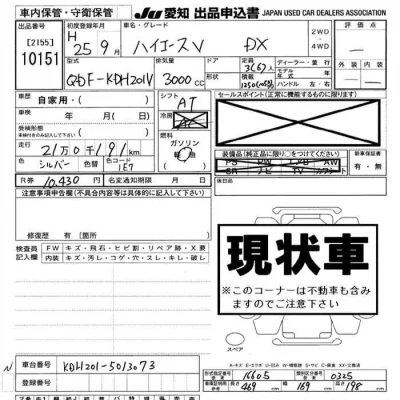 車内保管・守衛保管
JU 愛知 出品申込書 JAPAN USED CAR DEALERS ASSOCIATION
出品番号
[2155]
10151
初度登録年月
H 25 9 月
車名・グレード
ハイエースV DX
2WD
4WD
評価点
型式
QDF-KDH201V
排気量
3000 cc
ドア・形状
定員
3,6人
積載
ディーラー・並行
モデル
年式
外装
内装
車歴
自家用・
シフト
AT
冷房
AC
セールスポイント(正常に機能するものに限ります)
車検
年 月(日)
受検形態
年 月 日
走行
21万0千191km
燃料
ガソリン
軽
他
装備品(純正品に限り○をつけてください)
PS PW エアB AW
SR ナビ TV カワ
新車保証書
有・無
色
シルバー
色替
色コード
1E7
R券
10,430円
名変通知期限 月 日
後日品
注意事項申告欄(不具合内容等は具体的に記入して下さい)
修復歴 有( 箇所)
検査員
記入欄
FW キズ・飛石・ヒビ割・リペア跡・X要
内装 キズ・汚レ・コゲ・穴・スレ・キレ・ハガレ
現状車
※このコーナーは不動車も含み
ますのでご注意下さい
スペア
車台番号
KDH201-5013073
登録番号
型式指定番号
16605
類別区分番号
0325
長さ 469 幅 169 高さ 198